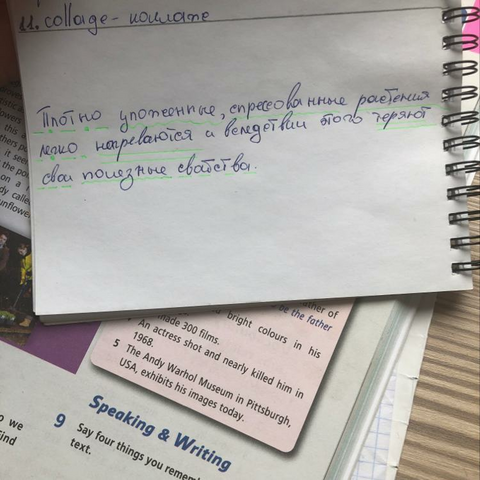 11. collage - коллаж
Плотно уложенные, спресованные растения
легко нагреваются и вследствии этого теряют
свои полезные свайства.
ather of
be the father
made 300 films.
bright colours in his
An actress shot and nearly killed him in
1968.
5 The Andy Warhol Museum in Pittsburgh,
USA, exhibits his images today.
Speaking & Writing
9 Say four things you remem
text.
o we
find